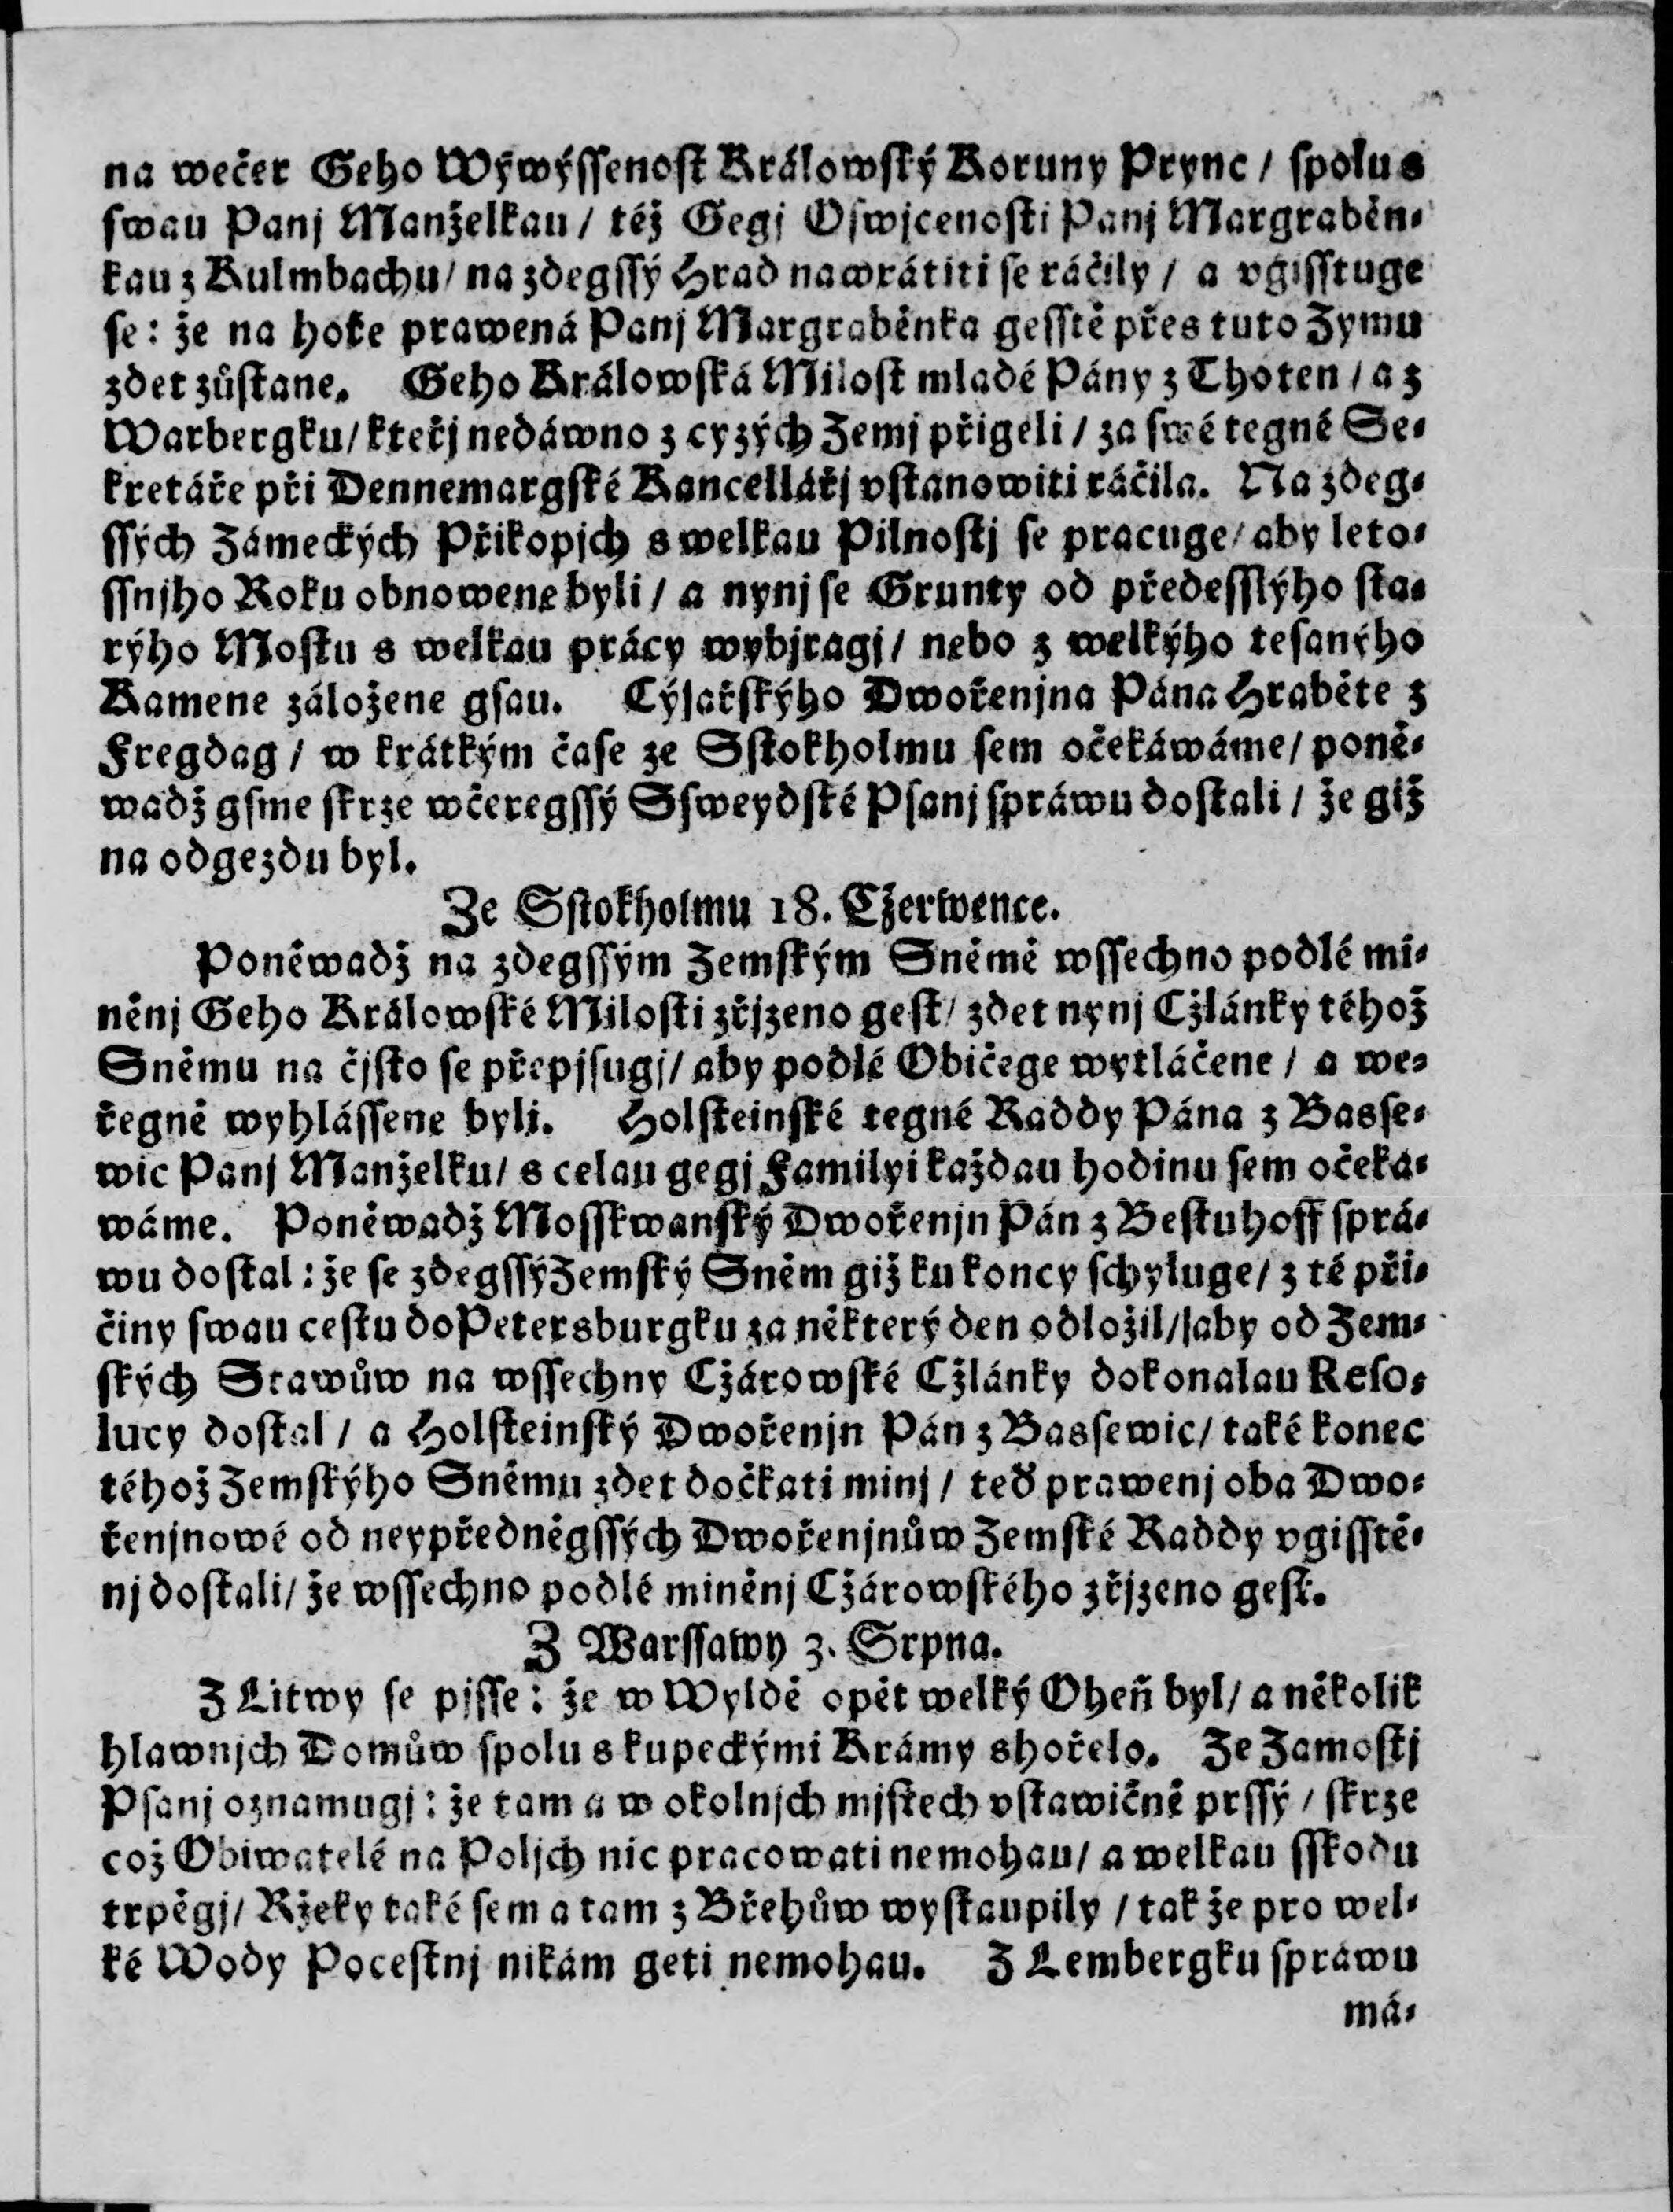 na wečer Geho Wýwýssenost Králowský Koruny Prync / spolu s
swau Panj Manželkau / též Gegj Oswjcenosti Panj Margraběn-
kau z Kulmbachu / na zdegssý Hrad nawrátiti se ráčily / a vgisstuge
se : že na hoře prawená Panj Margraběnka gesstě přes tuto Zymu
zdet zůstane. Geho Králowská Milost mladé Pány z Thoten / a z
Warbergku / kteřj nedáwno z cyzých Zemj přigeli / za swé tegné Se-
kretáře při Dennemargské Kancellářj vstanowiti ráčila. Na zdeg-
ssých Zámeckých Přikopjch s welkau Pilnostj se pracuge / aby leto-
ssnjho Roku obnowene byli / a nynj se Grunty od předesslýho sta-
rýho Mostu s welkau prácy wybjragj / nebo z welkýho tesanýho
Kamene záložene gsau. Cýsařskýho Dwořenjna Pána Hraběte z
Fregdag / w krátkým čase ze Sstokholmu sem očekáwáme / poně-
wadž gsme skrze wčeregssý Ssweydské Psanj spráwu dostali / že giž
na odgezdu byl.
Ze Sstokholmu 18. Cžerwence.
Poněwadž na zdegssým Zemským Sněmě wssechno podlé mi-
něnj Geho Králowské Milosti zřjzeno gest / zdet nynj Cžlánky téhož
Sněmu na čjsto se přepjsugj / aby podlé Običege wytláčene / a we-
řegně wyhlássene byli. Holsteinské tegné Raddy Pána z Basse-
wic Panj Manželku / s celau gegj Familyi každau hodinu sem očeka-
wáme. Poněwadž Mosskwanský Dwořenjn Pán z Bestuhoff sprá-
wu dostal : že se zdegssý Zemský Sněm giž ku koncy schyluge / z té při-
činy swau cestu do Petersburgku za některý den odložil / aby od Zem-
ských Stawůw na wssechny Cžárowské Cžlánky dokonalau Reso-
lucy dostal / a Holsteinský Dwořenjn Pán z Bassewic / také konec
téhož Zemskýho Sněmu zdet dočkati minj / teď prawenj oba Dwo-
řenjnowé od neypředněgssých Dwořenjnůw Zemské Raddy vgisstě-
nj dostali / že wssechno podlé miněnj Cžárowského zřjzeno gest.
Z Warssawy 3. Srpna.
Z Litwy se pjsse : že w Wyldě opět welký Oheň byl / a několik
hlawnjch Domůw spolu s kupeckými Krámy shořelo. Ze Zamostj
Psanj oznamugj : že tam a w okolnjch mjstech vstawičně prssý / skrze
což Obiwatelé na Poljch nic pracowati nemohau / a welkau sskodu
trpěgj / Ržeky také sem a tam z Břehůw wystaupily / tak že pro wel-
ké Wody Pocestnj nikám geti nemohau. Z Lembergku spráwu
má-